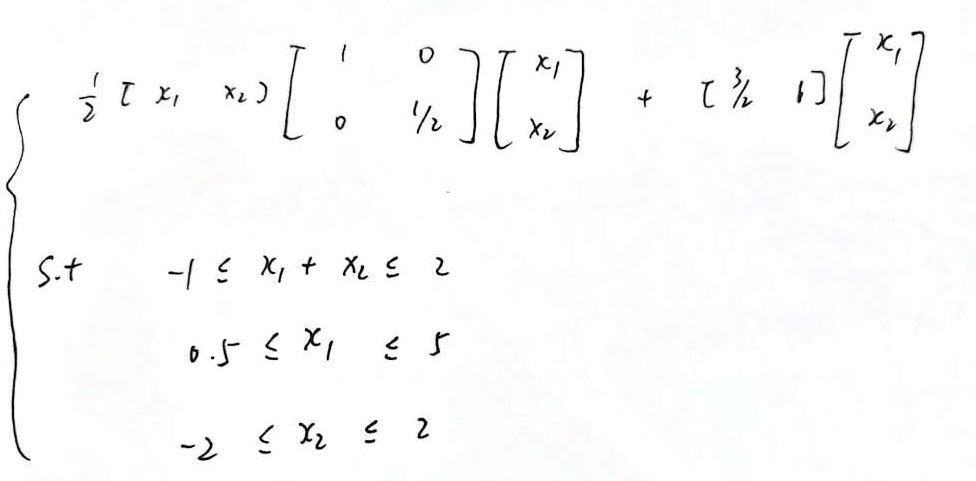 1/2 [ x₁ x₂ ] [ 1 0 ; 0 1/2 ] [ x₁ ; x₂ ] + [ 3/2 1 ] [ x₁ ; x₂ ]
S.t -1 ≤ x₁ + x₂ ≤ 2
0.5 ≤ x₁ ≤ 5
-2 ≤ x₂ ≤ 2